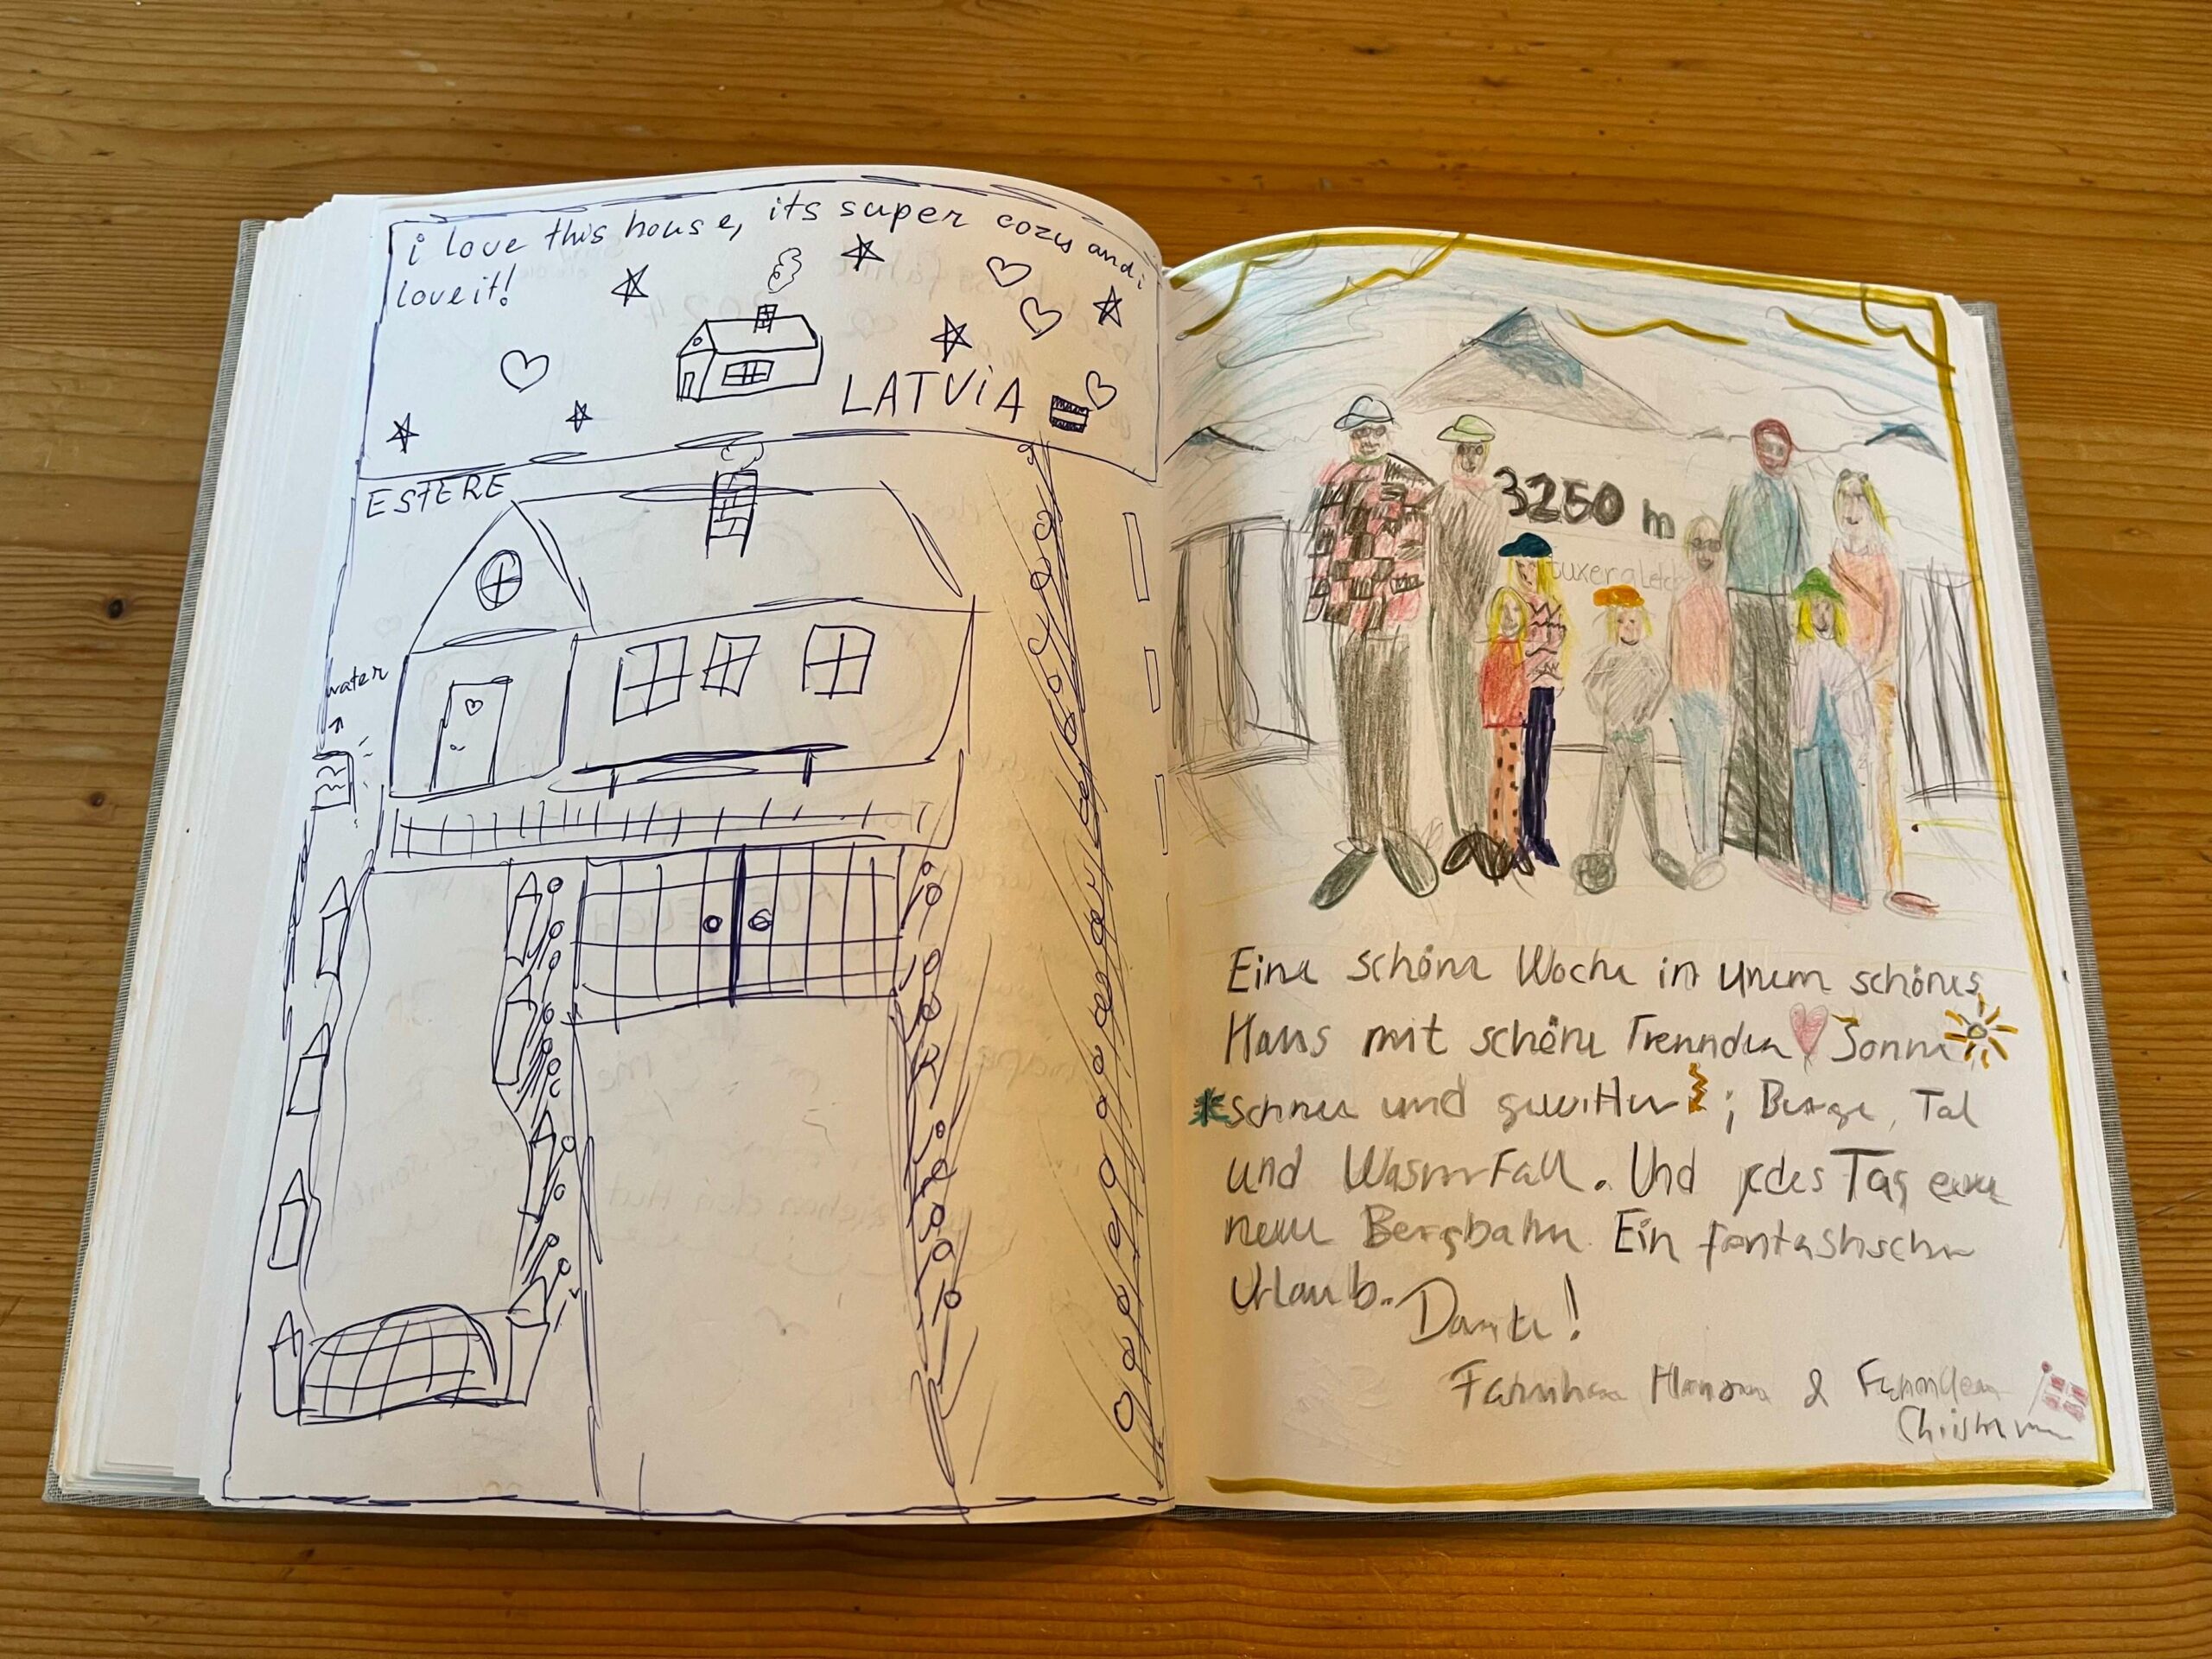 i love this house, its super cozy and i
love it!
LATVIA
ESTERE
water
3250 m
Eine schöne Woche in unem schönes
Haus mit schöne Freunden Sonne
schnee und gewitter ; Berge, Tal
und Wasserfall. Und jedes Tag eine
neue Bergbahn. Ein fantastische
Urlaub.
Danke!
&